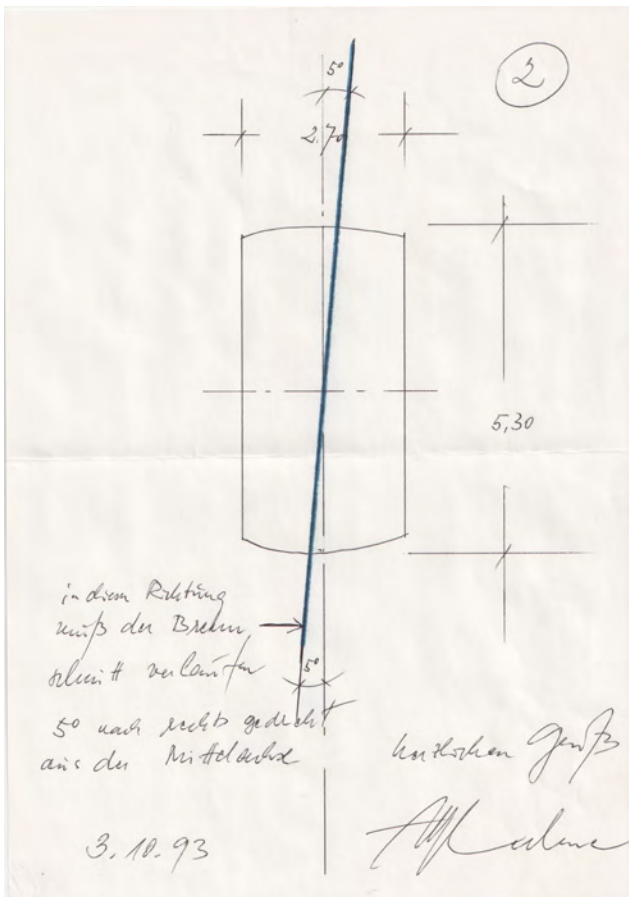 5°
2
2.70
5,30
in diesen Richtung
muß der Brenn
schnitt verlaufen
5°
5° nach rechts gedreht
aus der Mittelachse
herzlichen Gruß
3.10.93